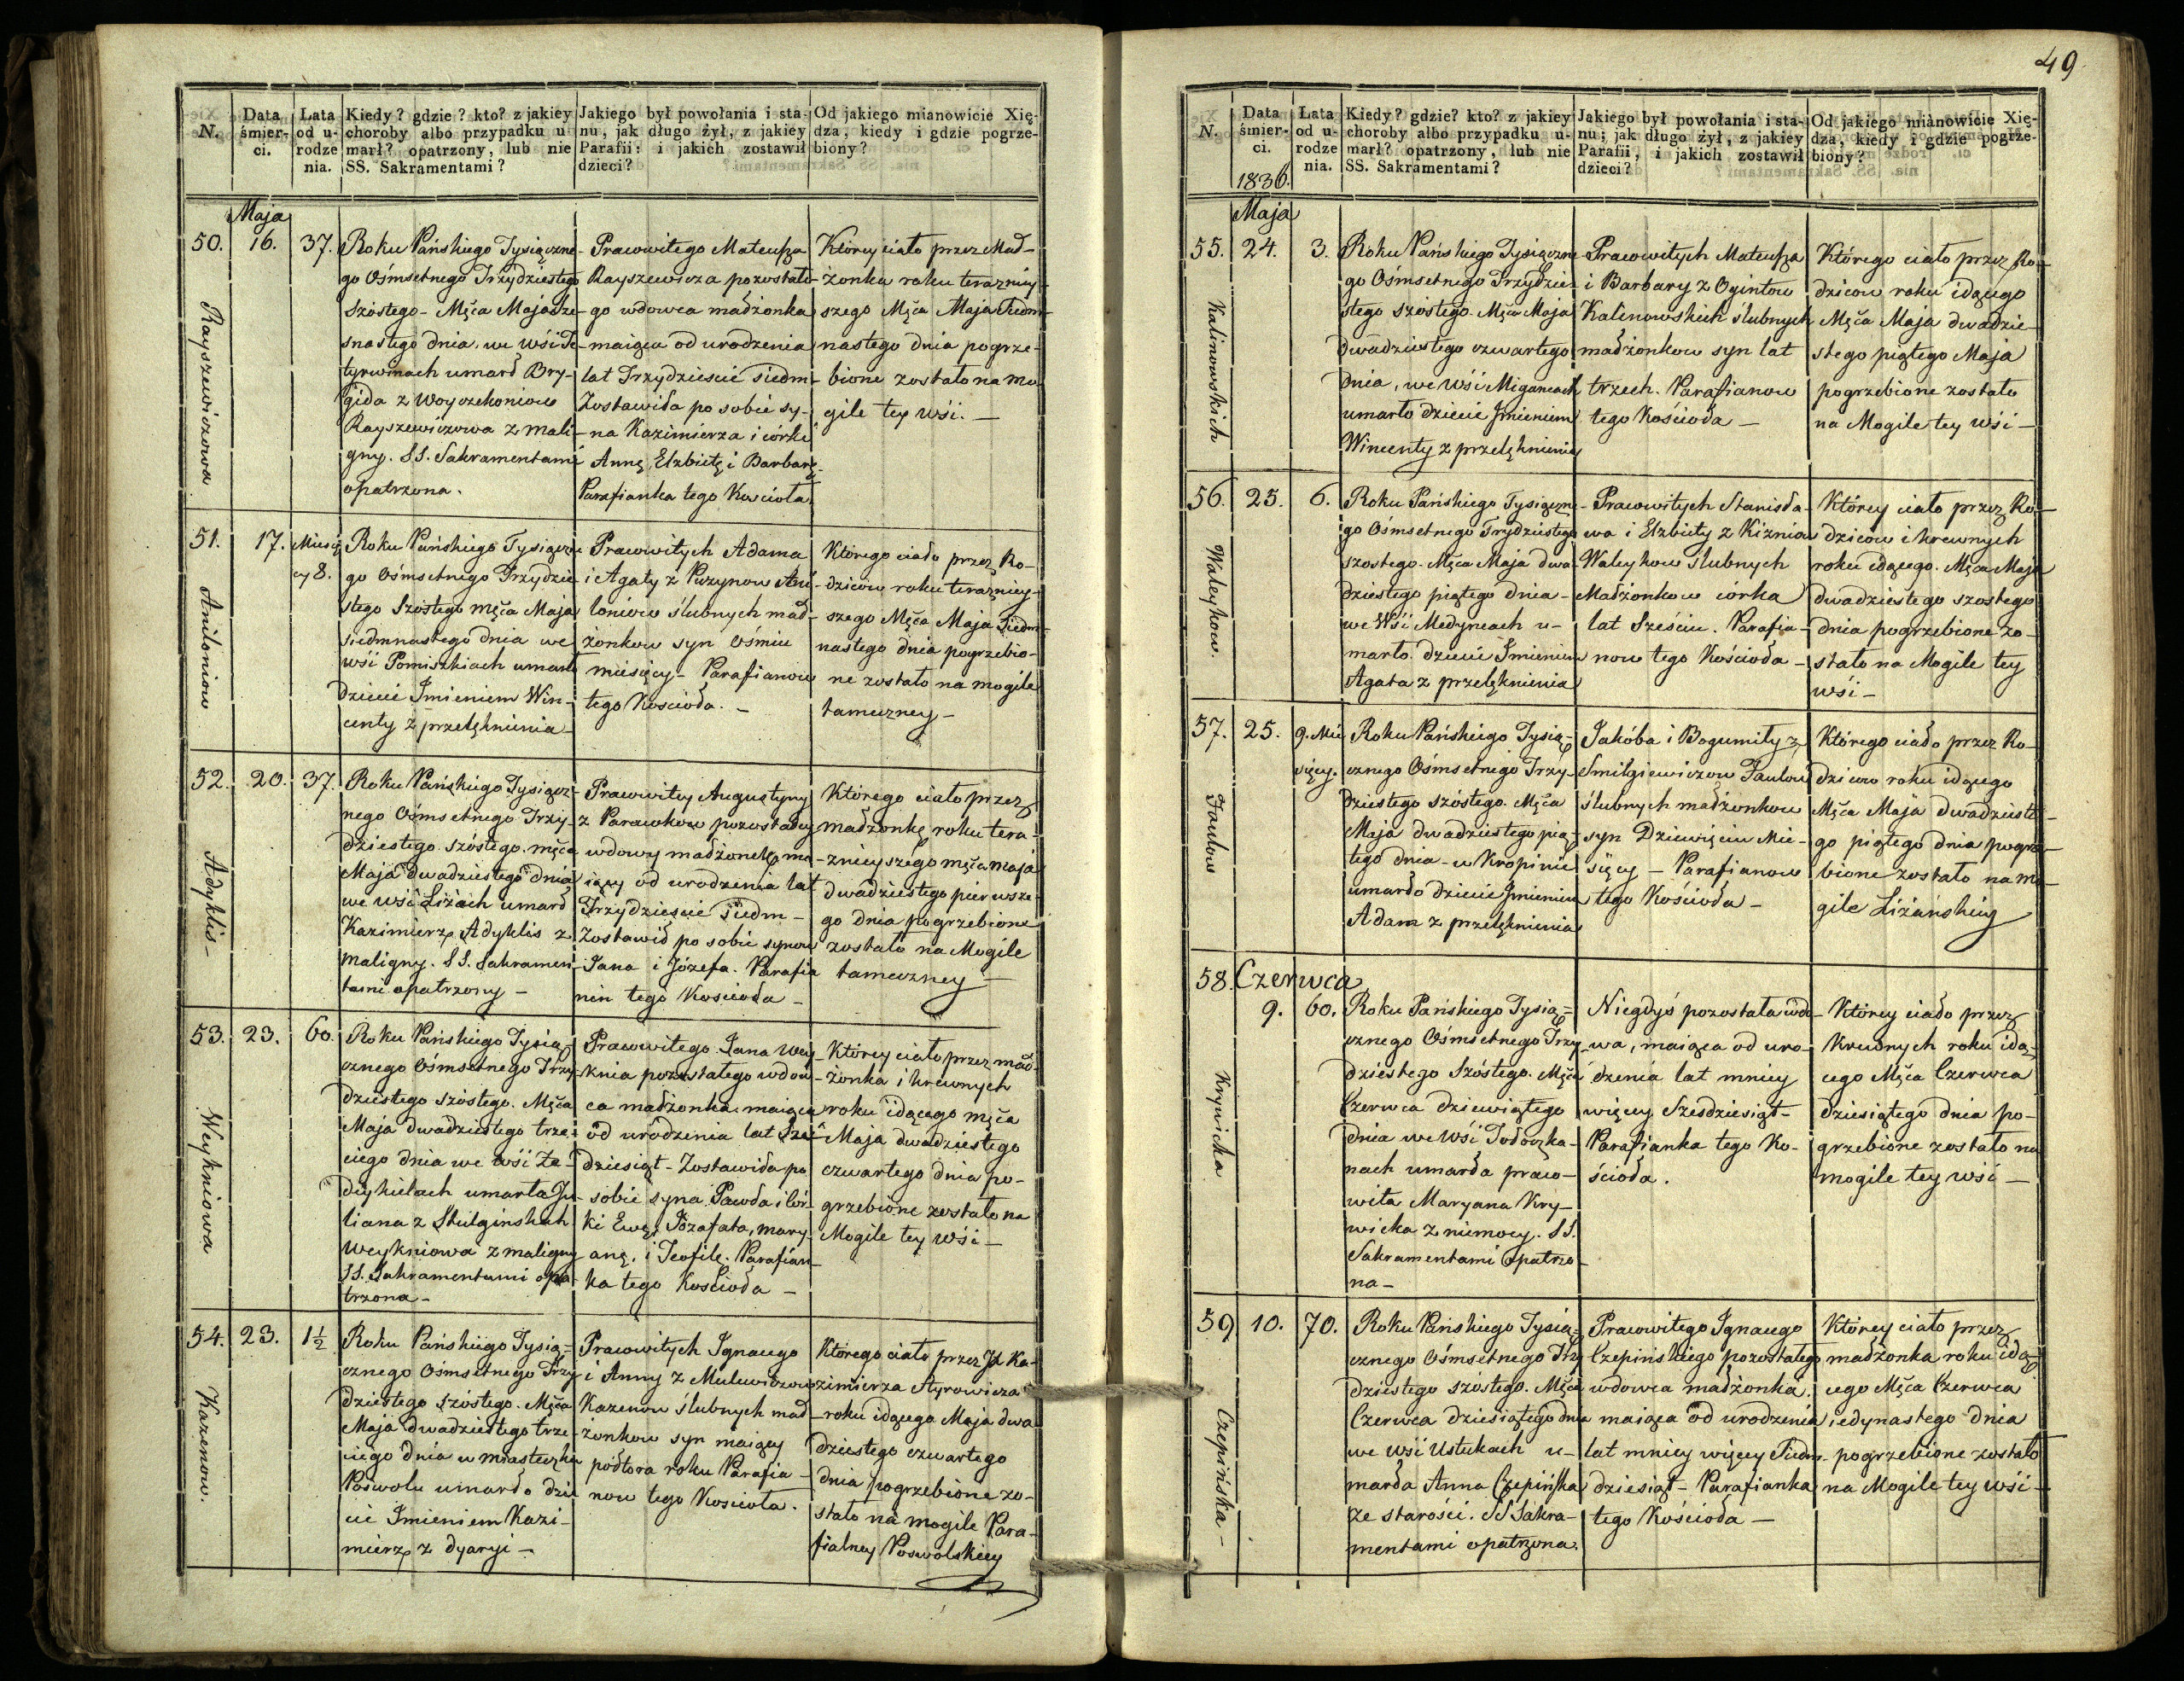 49
N.
Data śmierci.
Lata od urodzenia.
Kiedy? gdzie? kto? z jakiey
choroby albo przypadku u-
marł? opatrzony, lub nie
SS. Sakramentami?
Jakiego był powołania i sta-
nu, jak długo żył, z jakiey
Parafii: i jakich zostawił
dzieci?
Od jakiego mianowicie Xię-
dza, kiedy i gdzie pogrze-
biony?
Maja
50. 16. 37.
Rayszewiczowa
Roku Pańskiego Tysiączne-
go Ośmsetnego Trzydziestego
Szóstego - Męca Maja Sze-
snastego dnia, we wśi Te-
tyrwinach umarł Bry-
gida z Woyczekoniow
Rayszewiczowa z mali-
gny. SS. Sakramentami
opatrzona.
Prawowitego Mateusza
Rayszewicza pozostałe-
go wdowca madżonka
maiąca od urodzenia
lat Trzydzieście siedm
Zostawiła po sobie sy-
na Kazimierza i córki
Annę, Elzbietę i Barbarę.
Parafianka tego Kościoła.
Którey ciało przez Mad-
żonka roku teraźniey-
szego Męca Maja Siedm-
nastego dnia pogrze-
bione zostało na mo-
gile tey wśi. -
51. 17. Miesię
cy 8.
Aniloniow
Roku Pańskiego Tysiączne
go Ośmsetnego Trzydzie-
stego Szóstego męca Maja
siedmnastego dnia we
wśi Pomiszkiach umarło
dziecie Imieniem Win-
centy z przelęknienia
Prawowitych Adama
i Agaty z Puzynow Ani-
loniow ślubnych mad-
żonkow syn Ośmiu
miesięcy - Parafianow
tego Kościoła. -
Którego ciało przez Ro-
dziców roku teraźniey-
szego Męca Maja Siedm-
nastego dnia pogrzebio-
ne zostało na mogile
tameczney -
52. 20. 37.
Adyklis -
Roku Pańskiego Tysiącz-
nego Ośmsetnego Trzy-
dziestego szóstego męca
Maja dwadziestego dnia
we wśi Liżach umarł
Kazimierz Adyklis z
maligny. SS. Sakramen-
tami opatrzony -
Prawowitey Augustyny
z Parawkow pozostałey
wdowy madżonek, ma-
iący od urodzenia lat
Trzydzieście siedm -
Zostawił po sobie synow
Jana i Józefa. Parafia
nin tego Kościoła -
Którego ciało przez
madżonkę roku tera-
źnieyszego męca maja
dwadziestego pierwsze-
go dnia pogrzebione
zostało na Mogile
tameczney -
53. 23. 60.
Weykniowa
Roku Pańskiego Tysią-
cznego Ośmsetnego Trzy-
dziestego szóstego. Męca
Maja dwadziestego trze-
ciego dnia we wśi Za-
deykielach umarła Ju-
liana z Skilgińskich
Weykniowa z maligny
SS. Sakramentami opa-
trzona -
Prawowitego Jana Wey-
knia pozostałego wdow-
ca madżonka, maiąca
od urodzenia lat Sześ-
dziesiąt - Zostawiła po
sobie syna Pawła i cór-
ki Ewę, Józafatę, mary-
anę, i Teofilę. Parafian-
ka tego Kościoła -
Którey ciało przez mad-
żonka i krewnych
roku idącego męca
Maja dwadziestego
czwartego dnia po-
grzebione zostało na
Mogile tey wśi -
54. 23. 1½
Kazenow.
Roku Pańskiego Tysią-
cznego Ośmsetnego Trzy
dziestego szóstego. Męca
Maja dwadziestego trze-
ciego dnia w miasteczku
Poswolu umarło dzie
cie Imieniem Kazi-
mierz z dyaryi -
Prawowitych Ignacego
i Anny z Mulewiczow
Kazenow ślubnych mad-
żonkow syn maiący
półtora roku Parafia-
now tego Kościoła.
Którego ciało przez Jd Ka-
zimierza Styrowicza
roku idącego Maja dwa
dziestego czwartego
dnia pogrzebione zo-
stało na mogile Para-
fialney Poswolskiey
N.
Data śmierci.
1836.
Lata od urodzenia.
Kiedy? gdzie? kto? z jakiey
choroby albo przypadku u-
marł? opatrzony, lub nie
SS. Sakramentami?
Jakiego był powołania i sta-
nu; jak długo żył, z jakiey
Parafii, i jakich zostawił
dzieci?
Od jakiego mianowicie Xię-
dza, kiedy i gdzie pogrze-
biony?
Maja
55. 24. 3.
Kalinowskich
Roku Pańskiego Tysiączne
go Ośmsetnego Trzydzie-
stego szóstego. Męca Maja
dwadziestego czwartego
dnia, we wśi Migancach
umarło dziecie Imieniem
Wincenty z przelęknienia
Prawowitych Mateusza
i Barbary z Ogintow
Kalinowskich ślubnych
madżonkow syn lat
trzech. Parafianow
tego Kościoła -
Którego ciało przez Ro-
dzicow roku idącego
Męca Maja dwadzie-
stego piątego Maja
pogrzebione zostało
na Mogile tey wśi -
56. 25. 6.
Waleykow.
Roku Pańskiego Tysiączne-
go Ośmsetnego Trzydziestego
szóstego. Męca Maja dwa-
dziestego piątego dnia -
we Wśi Medyncach u-
marło dziecie Imieniem
Agata z przelęknienia
Prawowitych Stanisła-
wa i Elzbiety z Kiźniow
Waleykow ślubnych
Madżonkow córka
lat Sześciu. Parafia-
now tego Kościoła -
Którey ciało przez Ro-
dzicow i krewnych
roku idącego. Męca Maja
dwadziestego szóstego
dnia pogrzebione zo-
stało na Mogile tey
wśi -
57. 25. 9. Mie
sięcy.
Roku Pańskiego Tysią-
cznego Ośmsetnego Trzy-
dziestego szóstego. Męca
Maja dwadziestego pią-
tego dnia - w Kropinie
umarło dziecie Imieniem
Adam z przelęknienia
Jakóba i Bogumiły z
Smilgiewiczow
ślubnych madżonkow
syn Dziewięciu Mie-
sięcy - Parafianow
tego Kościoła -
Którego ciało przez Ro-
dzicow roku idącego
Męca Maja dwadzieste-
go piątego dnia pogrze-
bione zostało na mo-
gile Liżańskiey
58. Czerwca
9. 60.
Krywicka
Roku Pańskiego Tysią-
cznego Ośmsetnego Trzy
dziestego Szóstego. Męca
Czerwca dziewiątego
dnia we Wśi Todoczka-
nach umarła prawo-
wita Maryana Kry-
wicka z niemocy. SS.
Sakramentami Opatrzo-
na -
Niegdyś pozostała wdo-
wa, maiąca od uro-
dzenia lat mniey
więcey Sześdziesiąt -
Parafianka tego Ko-
ścioła.
Którey ciało przez
Krewnych roku idą-
cego Męca Czerwca
dziesiątego dnia po-
grzebione zostało na
mogile tey wśi -
59 10. 70.
Czepińska -
Roku Pańskiego Tysią-
cznego Ośmsetnego Trzy
dziestego szóstego. Męca
Czerwca dziesiątego dnia
we wśi Ustukach u-
marła Anna Czepińska
ze starości. SS Sakra-
mentami opatrzona.
Prawowitego Ignacego
Czepińskiego pozostałego
wdowca madżonka,
maiąca od urodzenia
lat mniey więcey Siedm-
dziesiąt - Parafianka
tego Kościoła -
Którey ciało przez
madżonka roku idą-
cego Męca Czerwca
iedynastego dnia
pogrzebione zostało
na Mogile tey wśi -